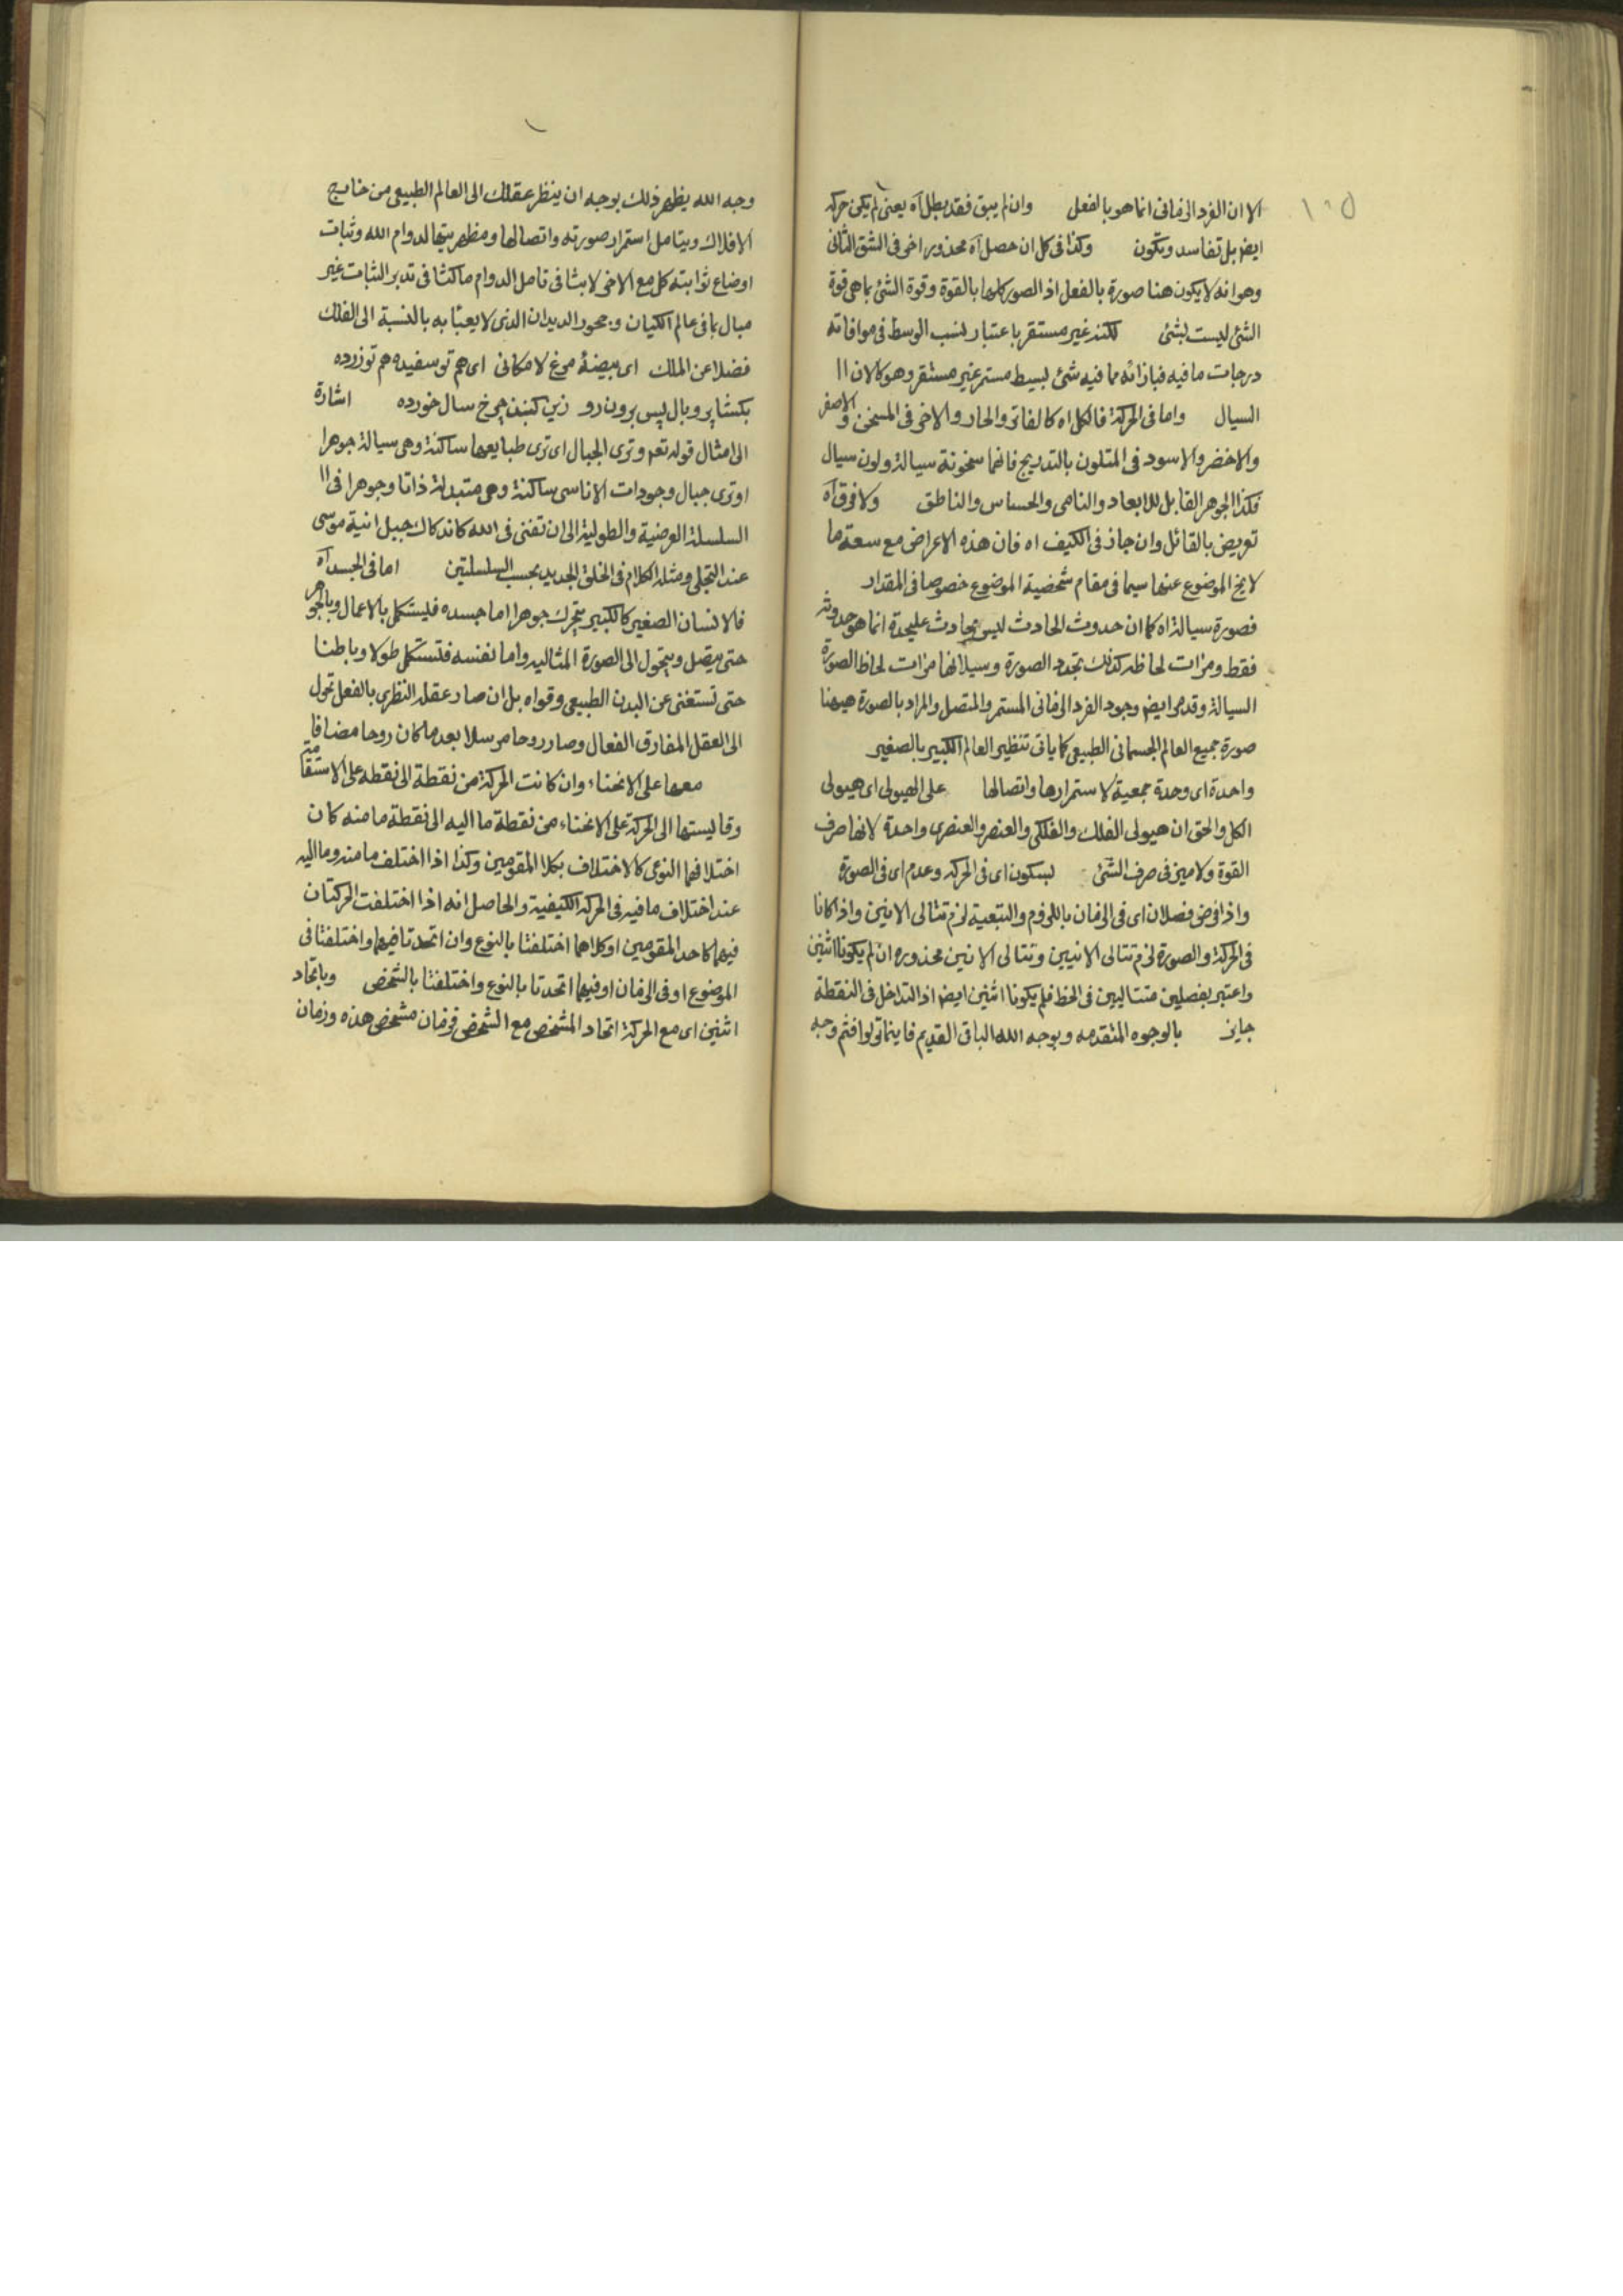 ١٠٥
الا ان الفرد الزمانى انما هو بالفعل وان لم يبق فقد بطل آه يعنى لم يكن حركة
ايض بل تفاسد وتكون وكذا فى كل ان حصل آه محذور اخر فى الشق الثانى
وهو انه لا يكون هنا صورة بالفعل اذ الصور كلها بالقوة وقوة الشئ بما هى قوة
الشئ ليست بشئ لكنه غير مستقر باعتبار نسب الوسط فى موافاته
درجات ما فيه فبازائه مما فيه شئ بسيط مستمر غير مستقر وهو كالان اا
السيال واما فى الحركة فالكل اه كالفاتر والحار والاخر فى المسخن والاصفر
والاخضر والاسود فى المتلون بالتدريج فانها سخونة سيالة ولون سيال
فكذا الجوهر القابل للابعاد والنامى والحساس والناطق ولا فرق آه
تعريض بالقائل وان جاز فى الكيف اه فان هذه الاعراض مع سعة ما
لا يخ الموضوع عنها سيما فى مقام شخصية الموضوع خصوصا فى المقدار
فصورة سيالة اه كما ان حدوث الحادث ليس بحادث عليحدة انما هو حدوثه
فقط ومرات لحاظه كذلك تجدد الصورة وسيلانها مرات لحاظ الصورة
السيالة وقد مر ايض وجود الفرد الزمانى المستمر والمتصل والمراد بالصورة هيهنا
صورة جميع العالم الجسمانى الطبيعى كما ياتى تنظير العالم الكبير بالصغير
واحدة اى وحدة جمعية لاستمرارها واتصالها على الهيولى اى هيولى
الكل والحق ان هيولى الفلك والفلكى والعنصر والعنصرى واحدة لانها صرف
القوة ولا ميز فى صرف الشئ بسكون اى فى الحركة وعدم اى فى الصورة
واذا فرض فصلان اى فى الزمان باللزوم والتبعية لزم تتالى الانين واذا كانا
فى الحركة والصورة لزم تتالى الانيين وتتالى الانين محذوره ان لم يكونا اثنين
واعتبر بفصلين متتاليين فى الخط فلم يكونا اثنين ايض اذ التداخل فى النقطة
جايز بالوجوه المتقدمه وبوجه الله الباقى القديم فاينما تولوا فثم وجه
وجه الله يظهر ذلك بوجه ان ينظر عقلك الى العالم الطبيعى من خارج
الافلاك ويتامل استمرار صورته واتصالها ومظهريتها لدوام الله وثبات
اوضاع ثوابته كل مع الاخر لابثا فى تامل الدوام ماكثا فى تدبر الثبات غير
مبال بما فى عالم الكيان و جحور الديدان الذى لا يعبأ به بالنسبة الى الفلك
فضلا عن الملك اى بيضهٔ مرغ لامكانى اى هم تو سفيده هم تو زرده
بكشا پر و بال پس برون رو زين كنبد چرخ سال خورده اشارة
الى امثال قوله تعم وترى الجبال اى ترى طبايعها ساكنة وهى سيالة جوهرا
او ترى جبال وجودات الاناسى ساكنة وهى متبدلة ذاتا وجوهرا فى اا
السلسلة العرضية والطولية الى ان تفنى فى الله كاندكاك جبل انية موسى
عند التجلى ومثله الكلام فى الخلق الجديد بحسب السلسلتين اما فى الجسد آه
فالانسان الصغير كالكبير يتحرك جوهرا اما جسده فليستكمل بالاعمال وبالجوهر
حتى يتصل ويتحول الى الصورة المثاليه واما نفسه فتستكمل طولا وباطنا
حتى تستغنى عن البدن الطبيعى وقواه بل ان صار عقله النظرى بالفعل تحول
الى العقل المفارق الفعال وصار روحا مرسلا بعد ما كان روحا مضافا
معها على الانحناء وان كانت الحركة من نقطة الى نقطة على الاستقامة
وقايستها الى الحركة على الانحناء من نقطة ما اليه الى نقطة ما منه كان
اختلافهما النوعى كالاختلاف بكلا المقومين وكذا اذا اختلف ما منه وما اليه
عند اختلاف ما فيه فى الحركة الكيفية والحاصل انه اذا اختلفت الحركتان
فيهما كاحد المقومين او كلاهما اختلفتا بالنوع وان اتحدتا فيهما واختلفتا فى
الموضوع او فى الزمان او فيهما اتحدتا بالنوع واختلفتا بالشخص وباتحاد
اثنين اى مع الحركة اتحاد المشخص مع الشخص فزمان مشخص هذه وزمان